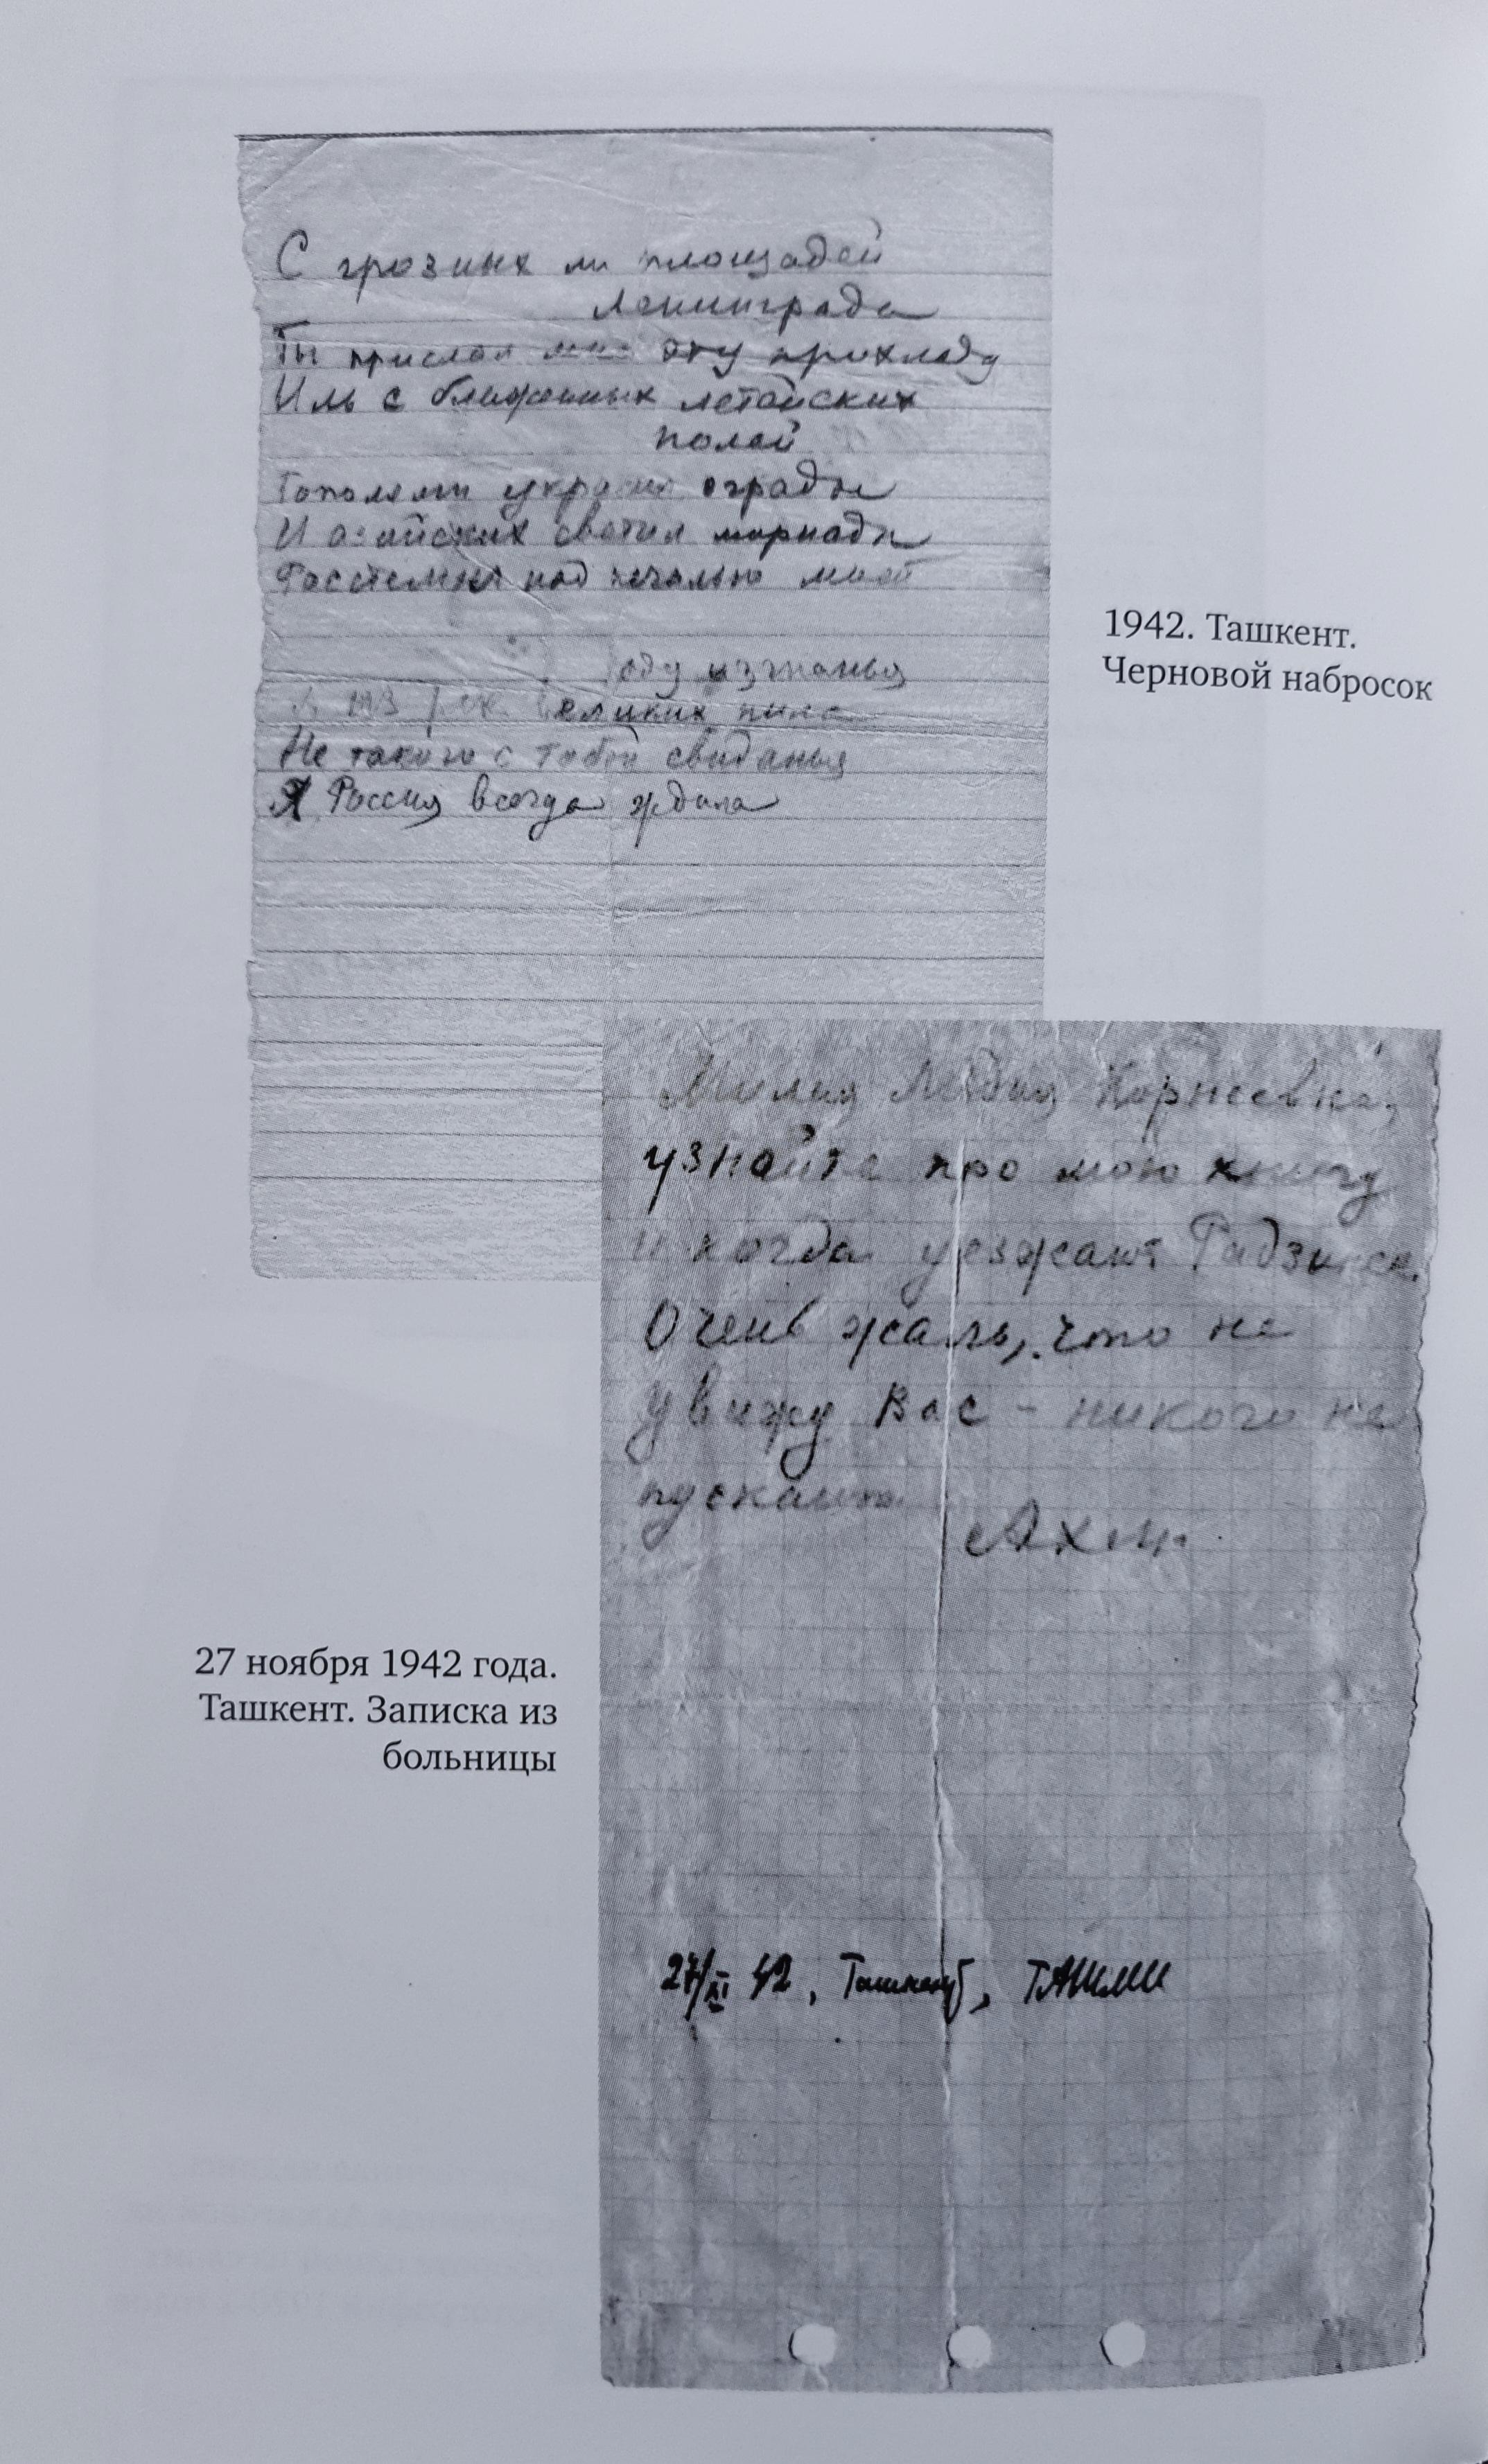 С грозных ли площадей
Ленинграда
Ты прислал мне эту прохладу
Иль с блаженных летейских
полей
Тополями украсил ограды
И азийских светил мириады
Расстелил над печалью моей
1942. Ташкент.
Черновой набросок
году изгнанья
великих
Не такого с тобой свиданья
Я Россия всегда ждала
Милая Лидия Корнеевна,
узнайте про мою книгу
и когда уезжают Радзинск.
Очень жаль, что не
увижу Вас – никого не
пускают
Ахм.
27 ноября 1942 года.
Ташкент. Записка из
больницы
27/XI 42, Ташкент, ТАШМИ